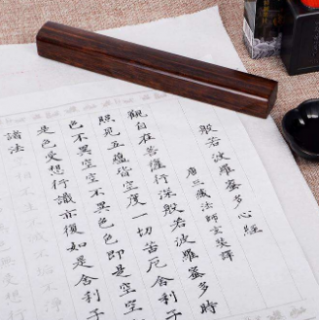 般若波羅蜜多心經
唐三藏法師玄奘譯
觀自在菩薩行深般若波羅蜜多時
照見五蘊皆空度一切苦厄舍利子
色不異空空不異色色即是空空
是色受想行識亦復如是舍利子
諸法